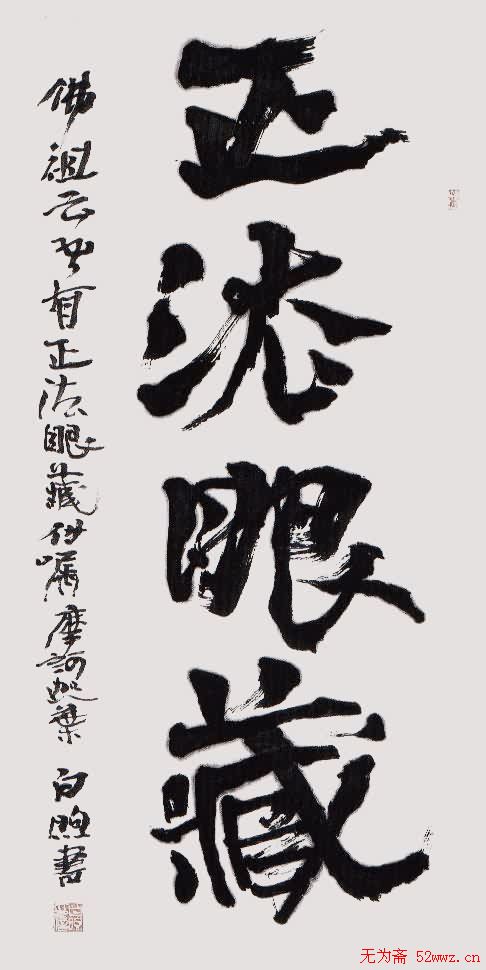 正法眼藏
佛祖云吾有正法眼藏付嘱摩訶迦葉 白煦書
无为斋 52wwz.cn